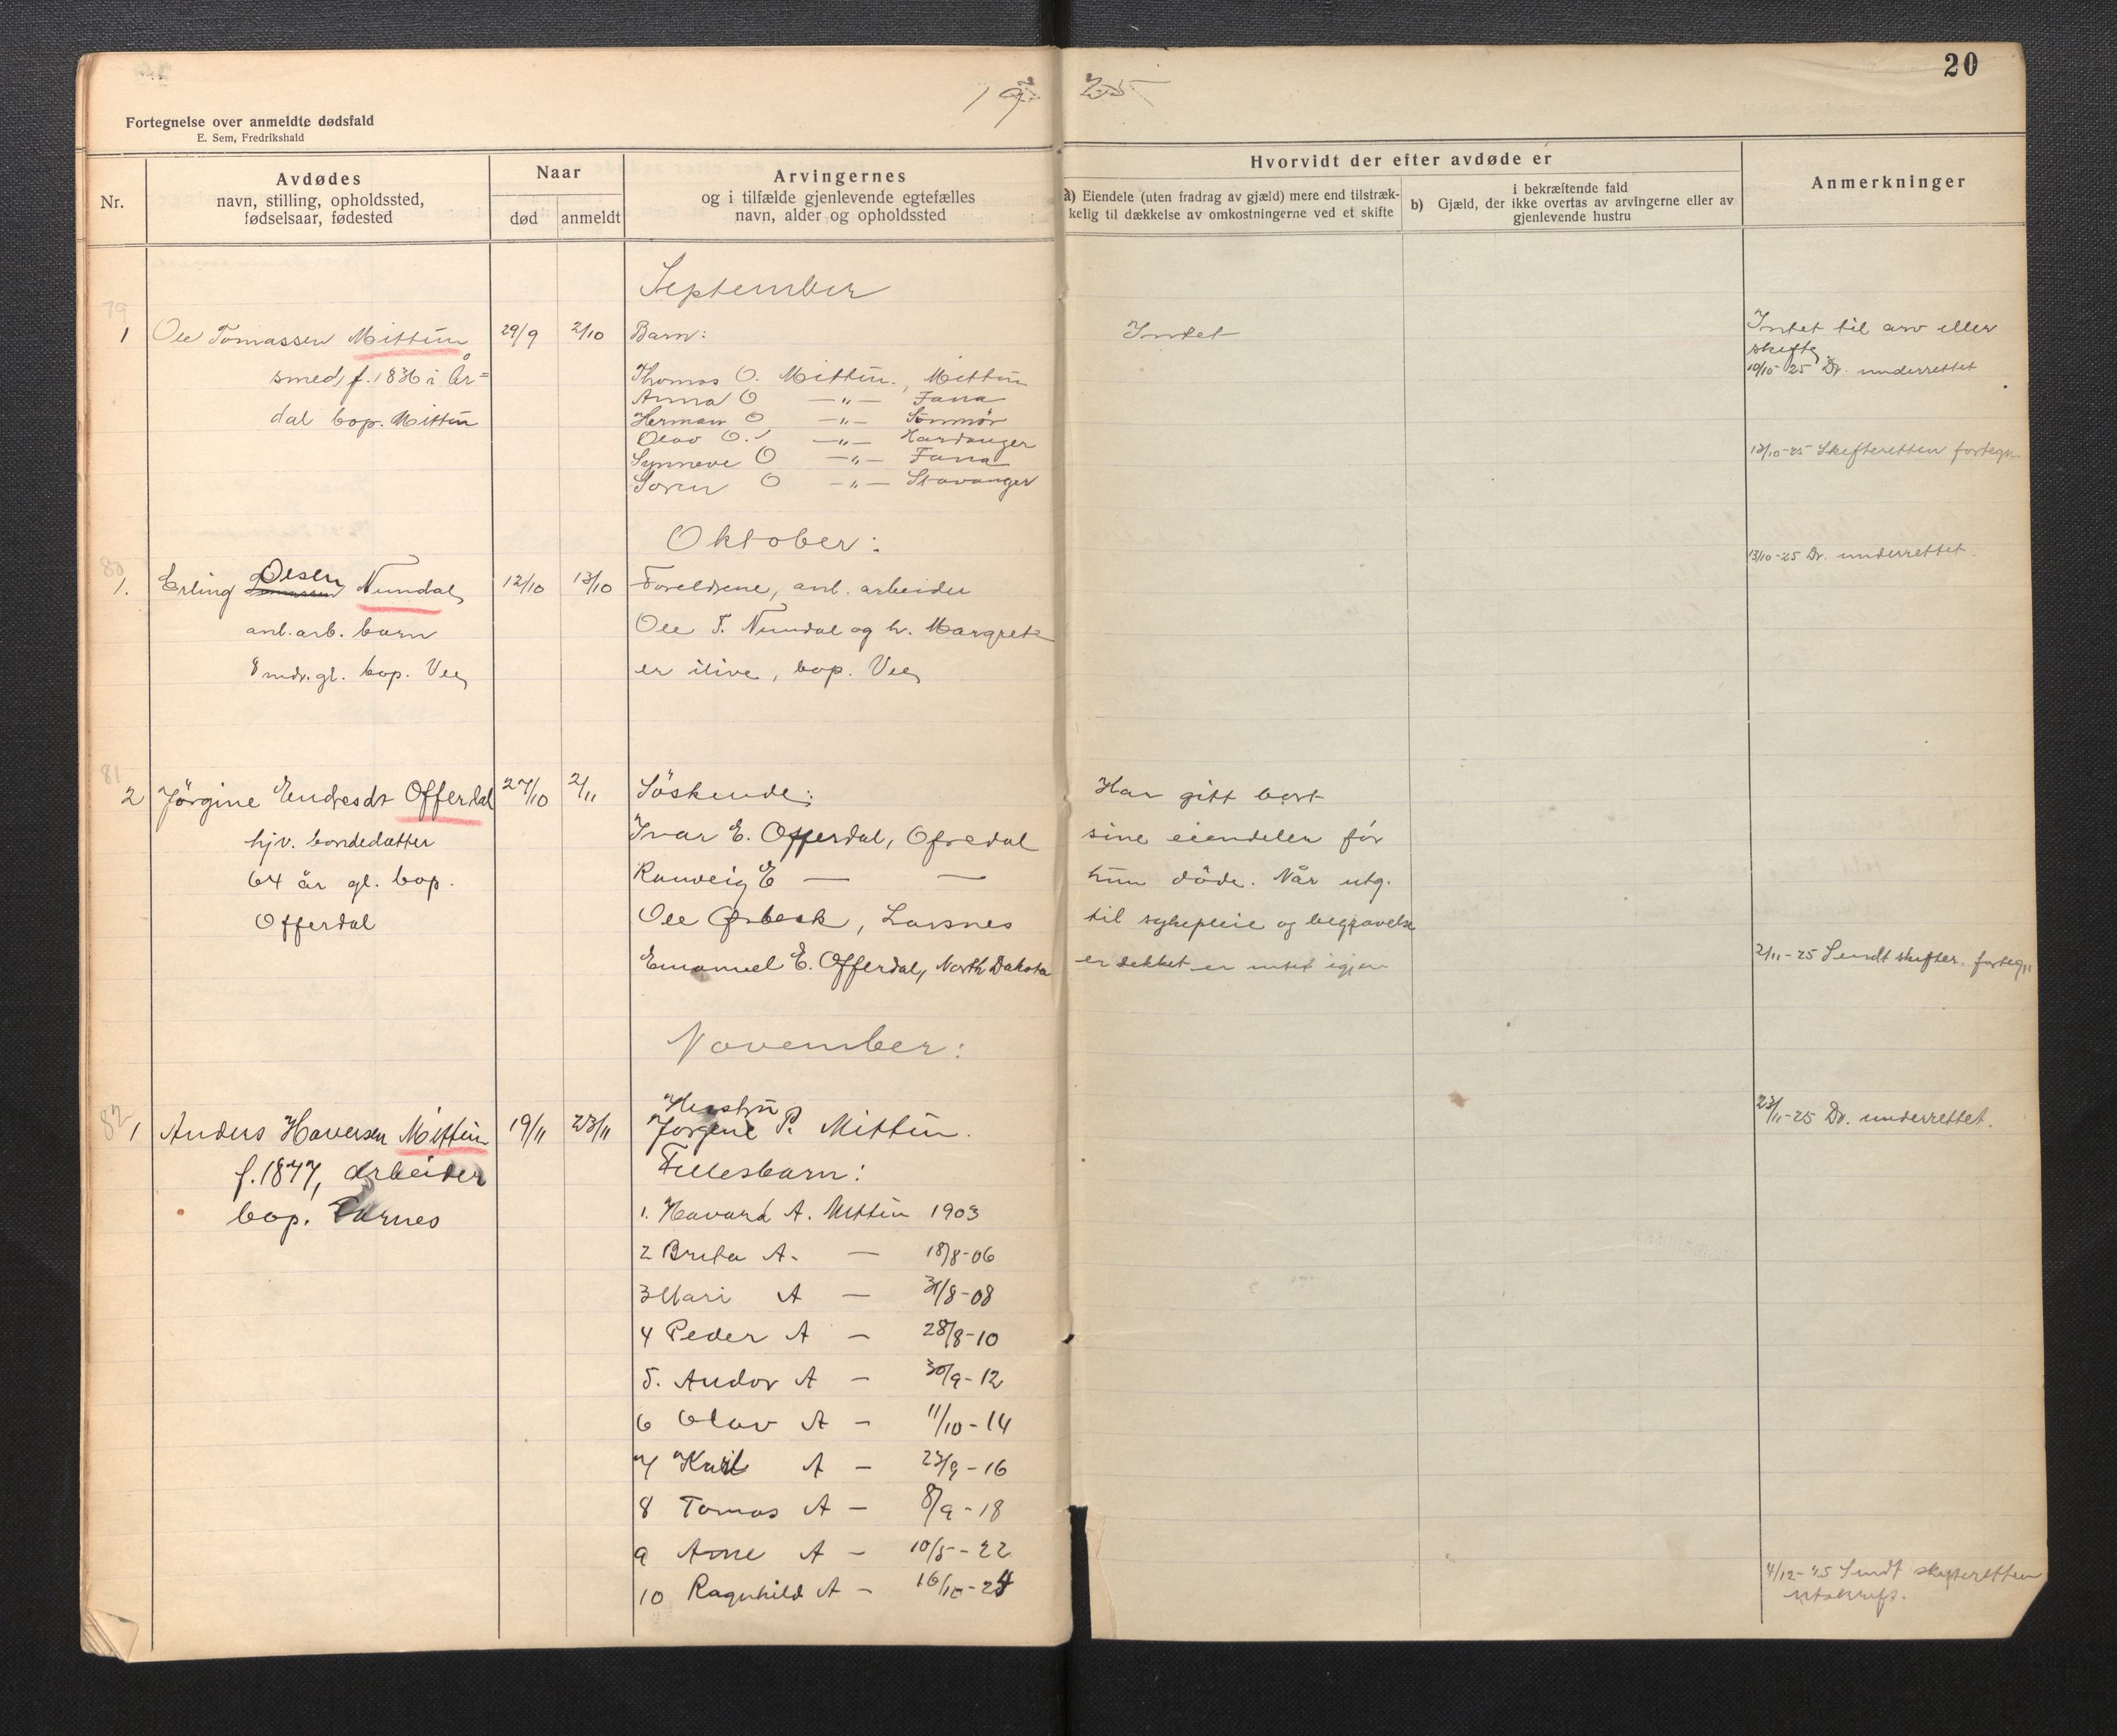 20
19 25
Fortegnelse over anmeldte dødsfald
E. Sem, Fredrikshald
Nr.
Avdødes
navn, stilling, opholdssted,
fødselsaar, fødested
Naar
død anmeldt
Arvingernes
og i tilfælde gjenlevende egtefælles
navn, alder og opholdssted
Hvorvidt der efter avdøde er
a) Eiendele (uten fradrag av gjæld) mere end tilstræk-
kelig til dækkelse av omkostningerne ved et skifte
i bekræftende fald
b) Gjæld, der ikke overtas av arvingerne eller av
gjenlevende hustru
Anmerkninger
September
79
1 Ole Tomassen Mittun 29/9 2/10 Barn: Intet Intet til arv eller
skifte
smed, f. 1836 i År=
dal bop. Mittun
Thomas O. Mittun, Mittun
Anna O -"- Fana
Herman O -"- Sönmör
Olav O. -"- Hardanger
Synneve O -"- Fana
Sören O -"- Stavanger
10/10-25 Dr. underrettet
13/10-25 Skifteretten fortegn
Oktober:
80
1. Erling Olsen Nundal, 12/10 13/10 Foreldrene, anl. arbeider
anl. arb. barn Ole T. Nundal og h. Margrete
8 mdr. gl. bop. Vee er ilive, bop. Vee
13/10-25 Dr. underrettet.
81
2 Jörgine Endresdt Offerdal 27/10 2/11 Söskende: Har gitt bort
hjv. bondedatter Ivar E. Offerdal, Ofredal sine eiendeler för
64 år gl. bop. Ranveig E — — hun döde. Når utg.
Offerdal Ole Ørbeck, Larsnes til sykepleie og begravelse
Emanuel E. Offerdal, North Dakota er dekket er intet igjen
2/11-25 Sendt skifter. fortegn
November:
82
1 Anders Haversen Mittun 19/11 23/11 Hustru
Jörgine P. Mittun. 23/11-25 Dr. underrettet.
f. 1877, arbeider Fellesbarn:
bop. Farnes 1. Havard A. Mittun 1903
2 Brita A. — 18/8-06
3 Mari A — 31/8-08
4 Peder A — 28/8-10
5. Andor A — 30/9-12
6 Olav A — 11/10-14
7 Karl A — 23/9-16
8 Tomas A — 8/9-18
9 Arne A — 10/5-22
10 Ragnhild A — 16/10-24
4/12-25 Sendt skifteretten
utskrift.